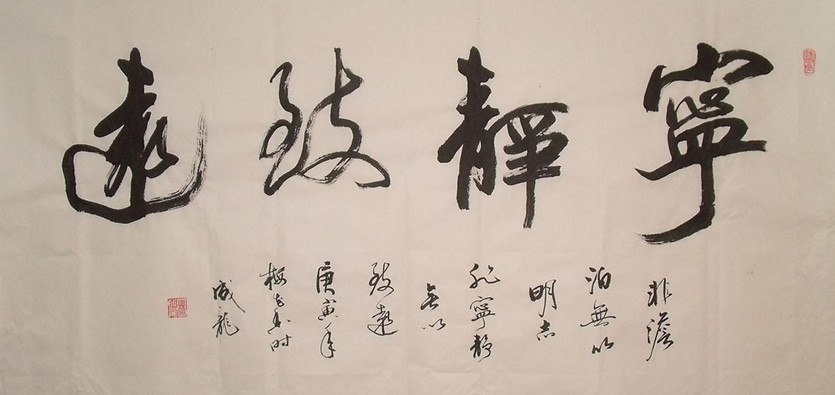 寧靜致遠
非澹
泊無以
明志
非寧靜
無以
致遠
庚寅年
梅花香时
成龍